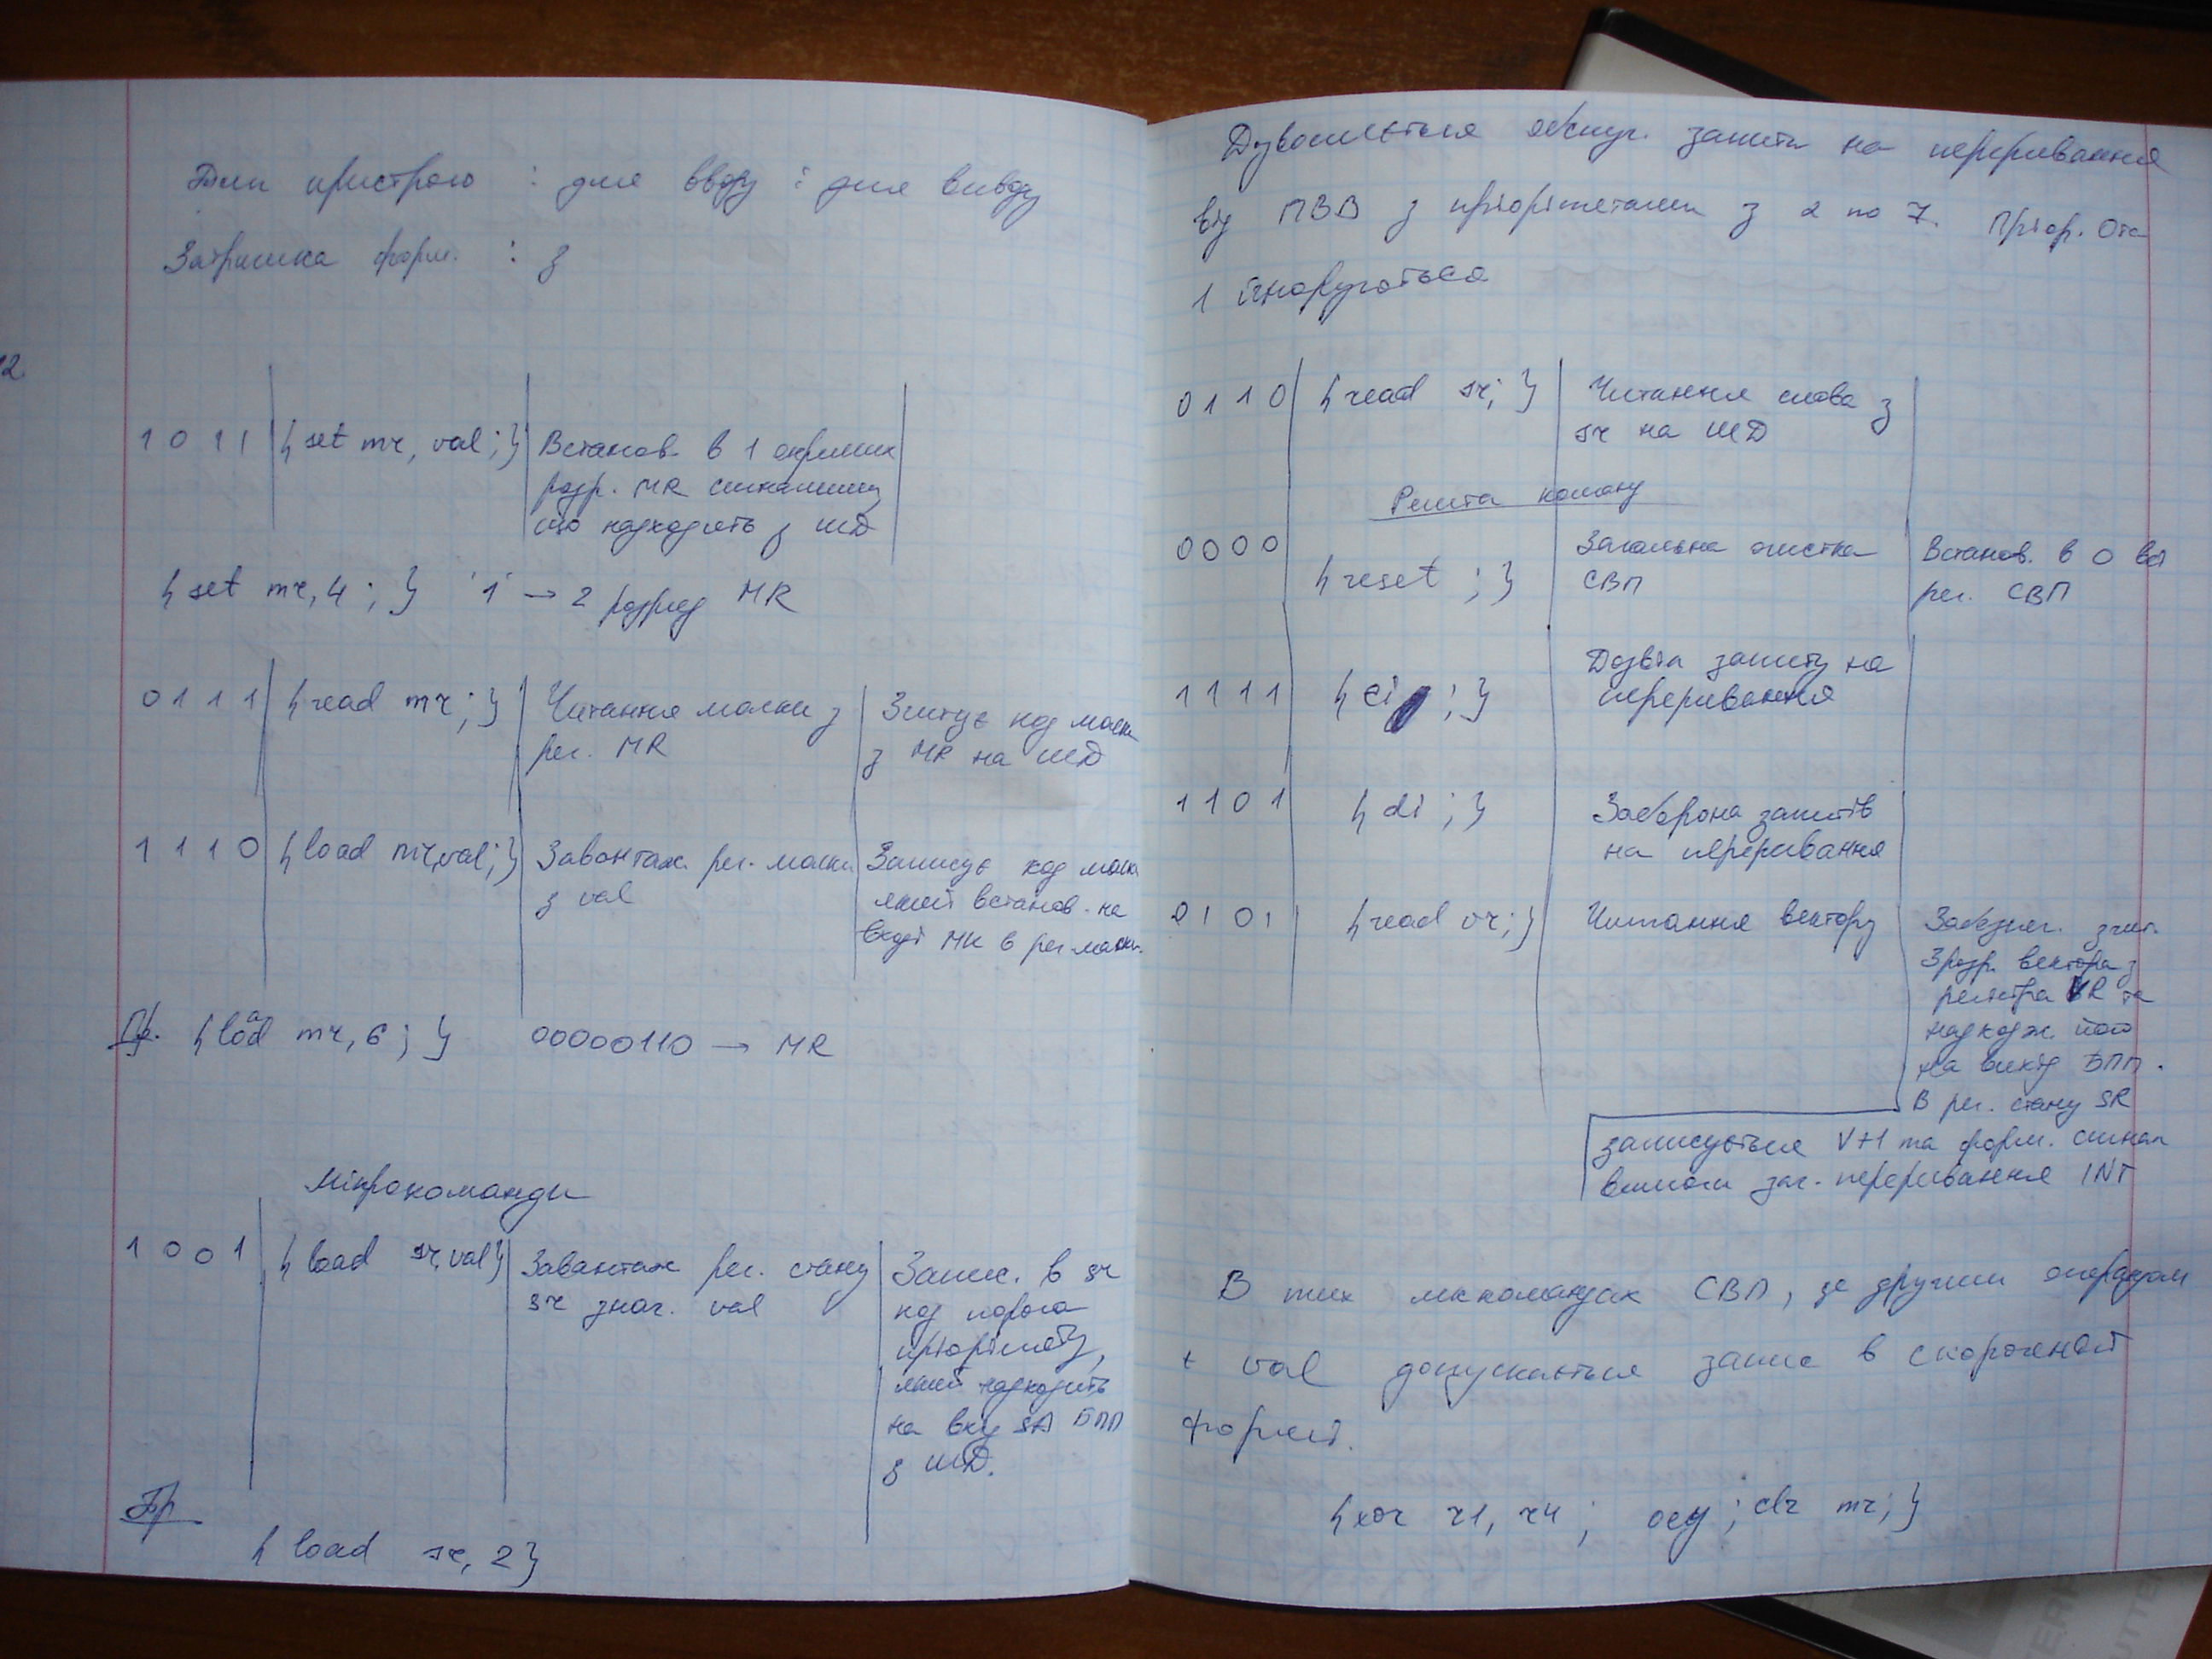 Тип пристрою : для вводу : для виводу
Затримка форм. : 3
2
1 0 1 1 {set mr, val;} Встанов. в 1 окремих
розр. MR
що надходить з ШД
{set mr, 4 ; } '1' → 2 розряд MR
0 1 1 1 {read mr;} Читання маски з Зчитує код маски
рег. MR з MR на ШД
1 1 1 0 {load mr,val;} Завантаж. рег. маски Записує код маски
з val який встанов. на
вході МК в рег маски.
Пр. {load mr, 6 ; } 00000110 → MR
Мікрокоманди
1 0 0 1 {load sr,val} Завантаж рег. стану Запис. в sr
sr знач. val код порога
пріорітету,
який надходить
на вхід SA БПП
з ШД.
Пр
{load sr, 2}
Дозволяється обслуг. запити на переривання
від ПВВ з пріорітетами з 2 по 7. Пріор. 0 та
1 ігноруються
0 1 1 0 {read sr; } Читання слова з
sr на ШД
Решта команд
0000 {reset ; } Загальна очистка Встанов. в 0 всі
СВП рег. СВП
1 1 1 1 {ei ; } Дозвіл запиту на
переривання
1 1 0 1 {di ; } Заборона запитів
на переривання
0 1 0 1 {read vr;} Читання вектору Забезпеч. зчит.
3 розр. вектора з
регістра VR та
надходж. його
на вихід БПП.
В рег. стану SR
записується V+1 та форм. сигнал
вимоги заг. переривання INT
В тих мкомандах СВП, де другим операндом
є val допускається запис в скороченій
формі.
{xor r1, r4 ; oey ; clr mr; }